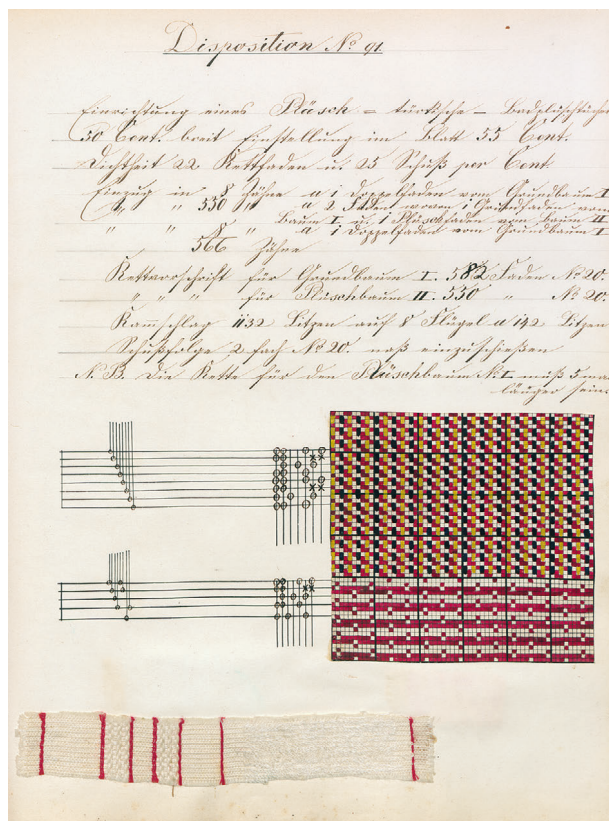 Disposition No 91.
Einrichtung eines Plüsch = türkische = Badplüschtücher
50 Cent. breit Einstellung im Blatt 55 Cent.
Dichtheit 22 Kettfaden u. 25 Schuß per Cent.
Einzug in 8 Zähne a 1 Doppelfaden vom Grundbaum I
" " 550 " a 2 Faden wovon 1 Grundfaden vom
Baum I u. 1 Plüschfaden vom Baum II
" " 8 " a 1 Doppelfaden vom Grundbaum I
566 Zähne
Kettvorschrift für Grundbaum I. 582 Faden No 20.
" " " für Plüschbaum II. 550 " No 20.
Kammschlag 1132 Litzen auf 8 Flügel a 142 Litzen
Schußfolge 2 fach No 20. naß einzuschießen
N. B. Die Kette für den Plüschbaum muß 5 mal
länger sein.